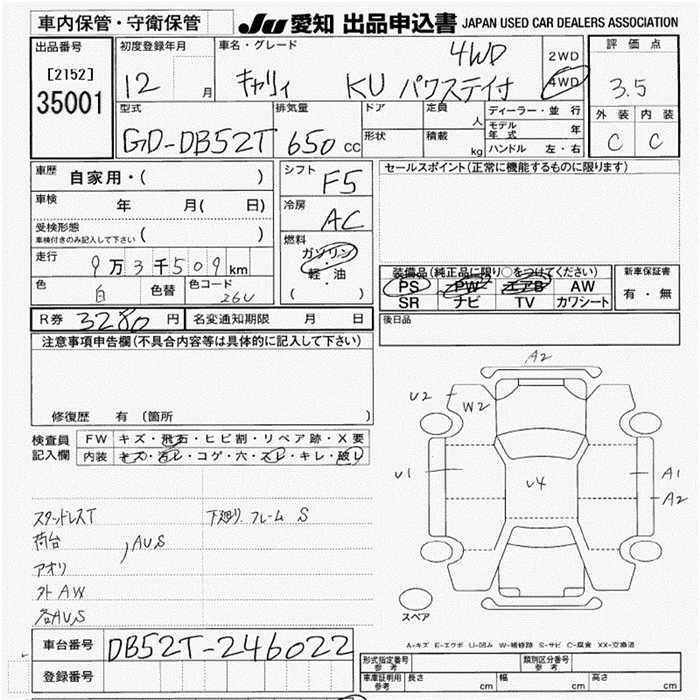 車内保管・守衛保管
JU 愛知 出品申込書 JAPAN USED CAR DEALERS ASSOCIATION
出品番号
[2152]
35001
初度登録年月
12 月
車名・グレード
4WD
キャリィ KU パワステ付
2WD
4WD
評価点
3.5
外装 内装
C C
型式
GD-DB52T
排気量
650 cc
ドア
形状
定員
人
積載
kg
ディーラー・並行
モデル年式 年
ハンドル 左・右
車歴
自家用・( )
車検
年 月( 日)
受検形態
車検付きのみ記入して下さい ( )
走行
9万3千509km
色
白
色替
色コード
26U
シフト
F5
冷房
AC
燃料
ガソリン
軽・油
( )
セールスポイント(正常に機能するものに限ります)
装備品(純正品に限り○をつけてください)
PS PW エアB AW
SR ナビ TV カワシート
新車保証書
有・無
R券 3280 円 名変通知期限 月 日
後日品
注意事項申告欄(不具合内容等は具体的に記入して下さい)
修復歴 有 〔箇所 〕
検査員
記入欄
FW キズ・飛石・ヒビ割・リペア跡・X要
内装 キズ・汚レ・コゲ・穴・スレ・キレ・破レ
スタッドレスT
荷台
AU,S
アオリ
外AW
各AU,S
下廻り、フレーム S
A2
U2
W2
U1
U4
A1
A2
スペア
A-キズ E-エクボ U-凹み W-補修跡 S-サビ C-腐食 XX-交換済
車台番号
DB52T-246022
登録番号
形式指定番号
参考
類別区分番号
参考
車庫証明用
参考
長さ cm 幅 cm 高さ cm